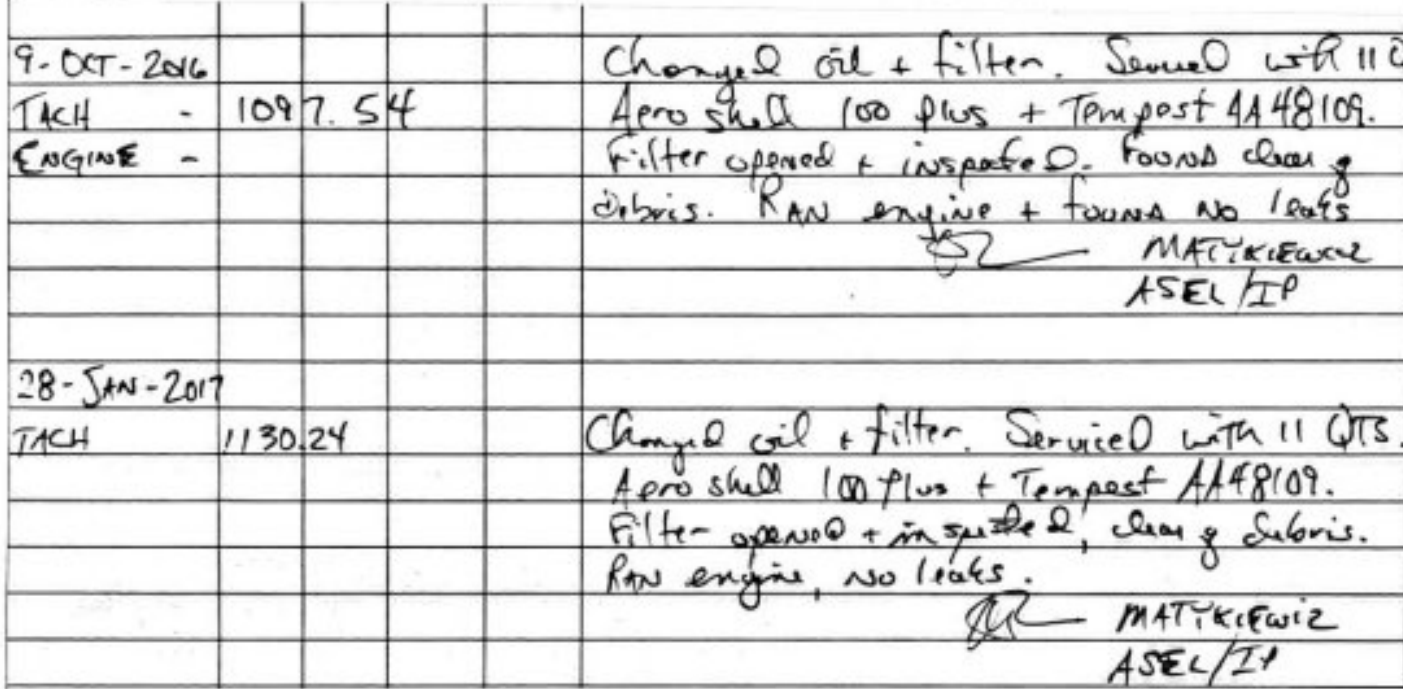 9-OCT-2016 Changed oil + filter. Serviced with 11 Q
TACH - 1097.54 Aero shell 100 plus + Tempest AA48109.
ENGINE - Filter opened + inspected. Found clear of
debris. RAN engine + found no leaks
MATYKIEWICZ
ASEL/IP
28-JAN-2017
TACH 1130.24 Changed oil + filter. Serviced with 11 QTS.
Aero shell 100 Plus + Tempest AA48109.
Filter opened + inspected, clear of debris.
RAN engine, no leaks.
MATYKIEWIZ
ASEL/IP